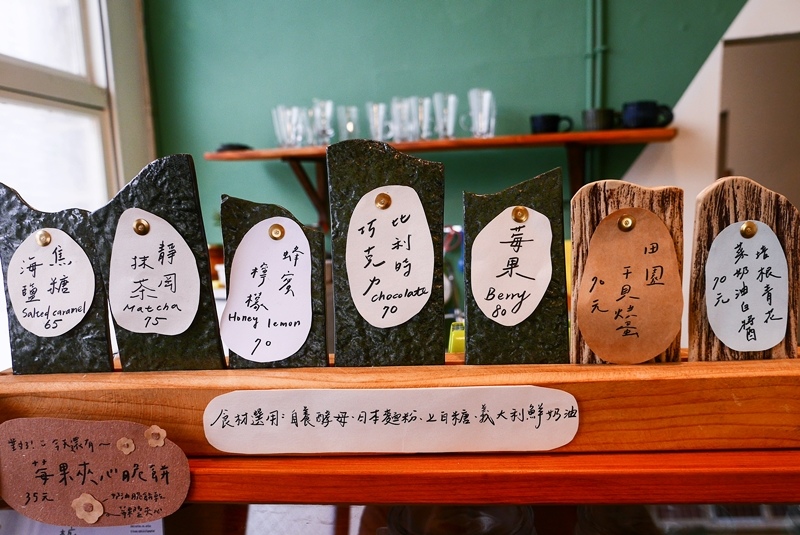 焦糖
海鹽
Salted caramel
65
靜岡
抹茶
Matcha
75
蜂蜜
檸檬
Honey lemon
70
比利時
巧克力
chocolate
70
莓果
Berry
80
田園
干貝烘蛋
90元
培根青花
菜奶油白醬
90元
食材選用:自養酵母、日本麵粉、上白糖、義大利鮮奶油
今天還有~
莓果夾心脆餅
35元